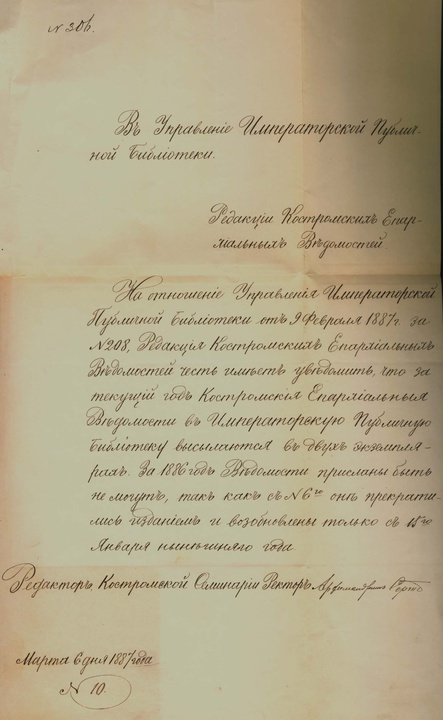 № 306.
Въ Управленіе Императорской Публич-
ной Библіотеки.
Редакціи Костромскихъ Епар-
хіальныхъ Вѣдомостей
На отношеніе Управленія Императорской
Публичной Библіотеки отъ 9 Февраля 1887 г. за
№ 208, Редакція Костромскихъ Епархіальныхъ
Вѣдомостей честь имѣетъ увѣдомить, что за
текущій годъ Костромскія Епархіальныя
Вѣдомости въ Императорскую Публичную
Библіотеку высылаются въ двухъ экземпля-
рахъ. За 1886 годъ Вѣдомости присланы быть
не могутъ, такъ какъ съ № 6го онѣ прекрати-
лись изданіемъ и возобновлены только съ 15го
Января нынѣшняго года
Редакторъ, Костромской Семинаріи Ректоръ Архимандритъ
Марта 6 дня 1887 года
№ 10.